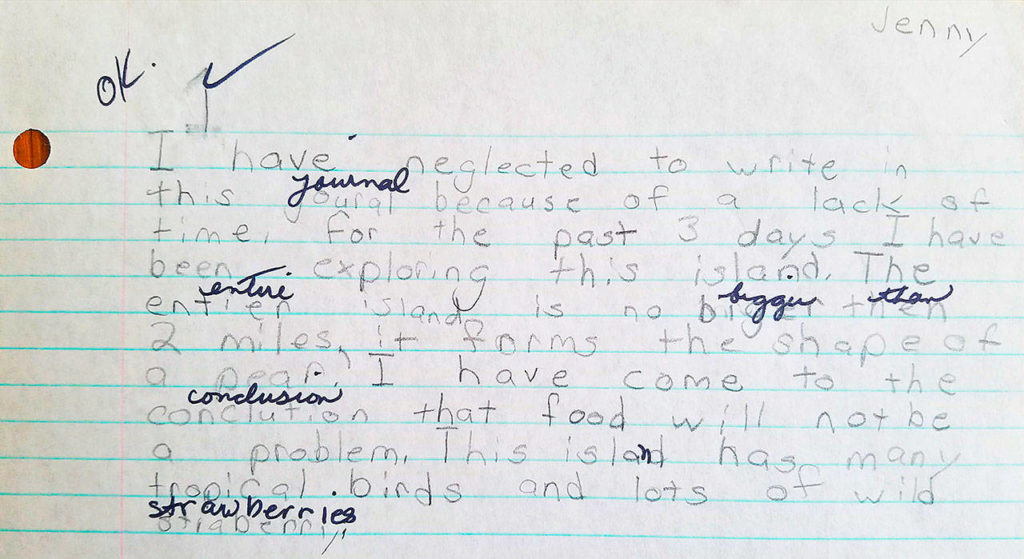 Jenny
OK.
I have neglected to write in
journal
this joural because of a lack of
time. For the past 3 days I have
been exploring this island. The
entire bigger than
entier island is no biger then
2 miles, it forms the shape of
a pear. I have come to the
conclusion
conclution that food will not be
a problem. This island has many
tropical birds and lots of wild
strawberries